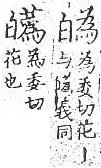 為委切花丨
与義同
蘤為委切
花也